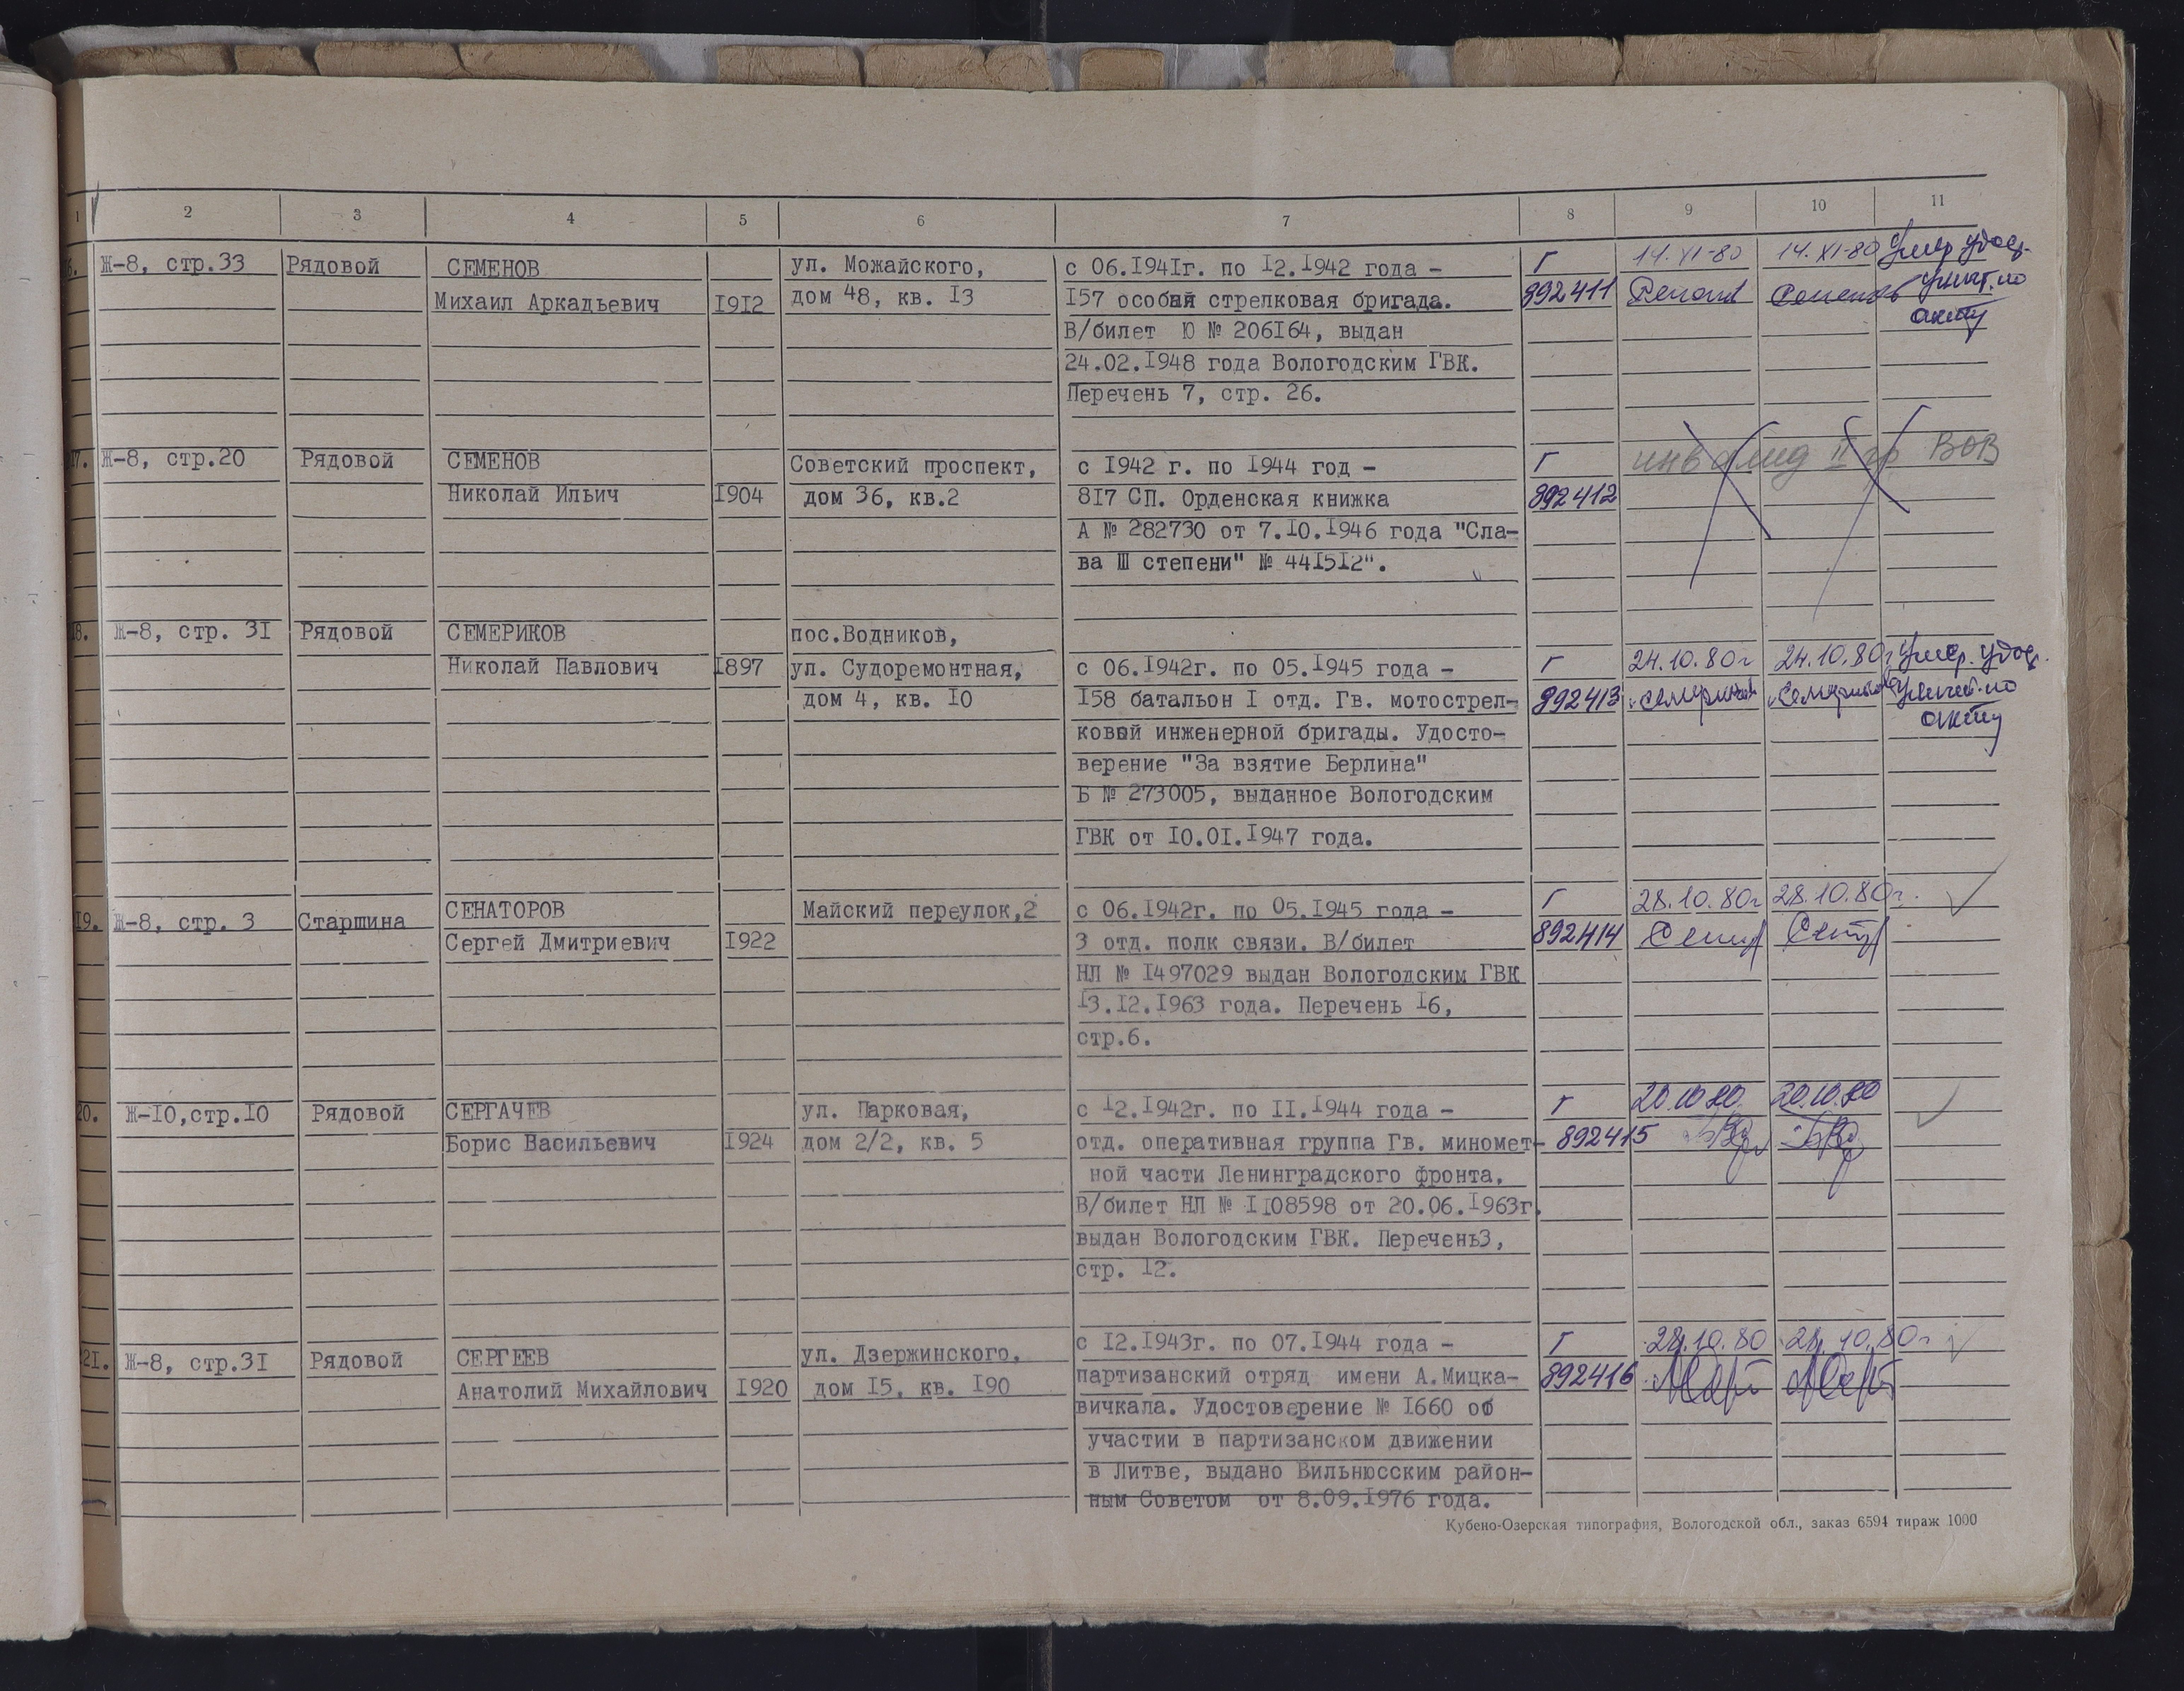 1 2 3 4 5 6 7 8 9 10 11
6. Ж-8, стр.33 Рядовой СЕМЕНОВ ул. Можайского, с 06.1941г. по 12.1942 года - Г 14.XI-80 14.XI-80 Умер удос.
Михаил Аркадьевич 1912 дом 48, кв. 13 157 особая стрелковая бригада. 892411 уничт. по
В/билет Ю № 206164, выдан акту
24.02.1948 года Вологодским ГВК.
Перечень 7, стр. 26.
7. Ж-8, стр.20 Рядовой СЕМЕНОВ Советский проспект, с 1942 г. по 1944 год - Г инвалид II гр ВОВ
Николай Ильич 1904 дом 36, кв.2 817 СП. Орденская книжка 892412
А № 282730 от 7.10.1946 года "Сла-
ва III степени" № 441512".
18. Ж-8, стр. 31 Рядовой СЕМЕРИКОВ пос.Водников,
Николай Павлович 1897 ул. Судоремонтная, с 06.1942г. по 05.1945 года - Г 24.10.80г 24.10.80г Умер. удос.
дом 4, кв. 10 158 батальон 1 отд. Гв. мотострел- 892413 уничт. по
ковой инженерной бригады. Удосто- акту
верение "За взятие Берлина"
Б № 273005, выданное Вологодским
ГВК от 10.01.1947 года.
19. Ж-8, стр. 3 Старшина СЕНАТОРОВ Майский переулок,2 с 06.1942г. по 05.1945 года - Г 28.10.80г 28.10.80г.
Сергей Дмитриевич 1922 3 отд. полк связи. В/билет 892414
НЛ № 1497029 выдан Вологодским ГВК
13.12.1963 года. Перечень 16,
стр.6.
20. Ж-10,стр.10 Рядовой СЕРГАЧЕВ ул. Парковая, с 12.1942г. по 11.1944 года - Г 20.10.80. 20.10.80
Борис Васильевич 1924 дом 2/2, кв. 5 отд. оперативная группа Гв. миномет- 892415
ной части Ленинградского фронта.
В/билет НЛ № 1108598 от 20.06.1963г.
выдан Вологодским ГВК. Перечень3,
стр. 12.
21. Ж-8, стр.31 Рядовой СЕРГЕЕВ ул. Дзержинского, с 12.1943г. по 07.1944 года - Г 28.10.80 28.10.80г
Анатолий Михайлович 1920 дом 15, кв. 190 партизанский отряд имени А.Мицка- 892416
вичкала. Удостоверение № 1660 об
участии в партизанском движении
в Литве, выдано Вильнюсским район-
ным Советом от 8.09.1976 года.
Кубено-Озерская типография, Вологодской обл., заказ 6594 тираж 1000